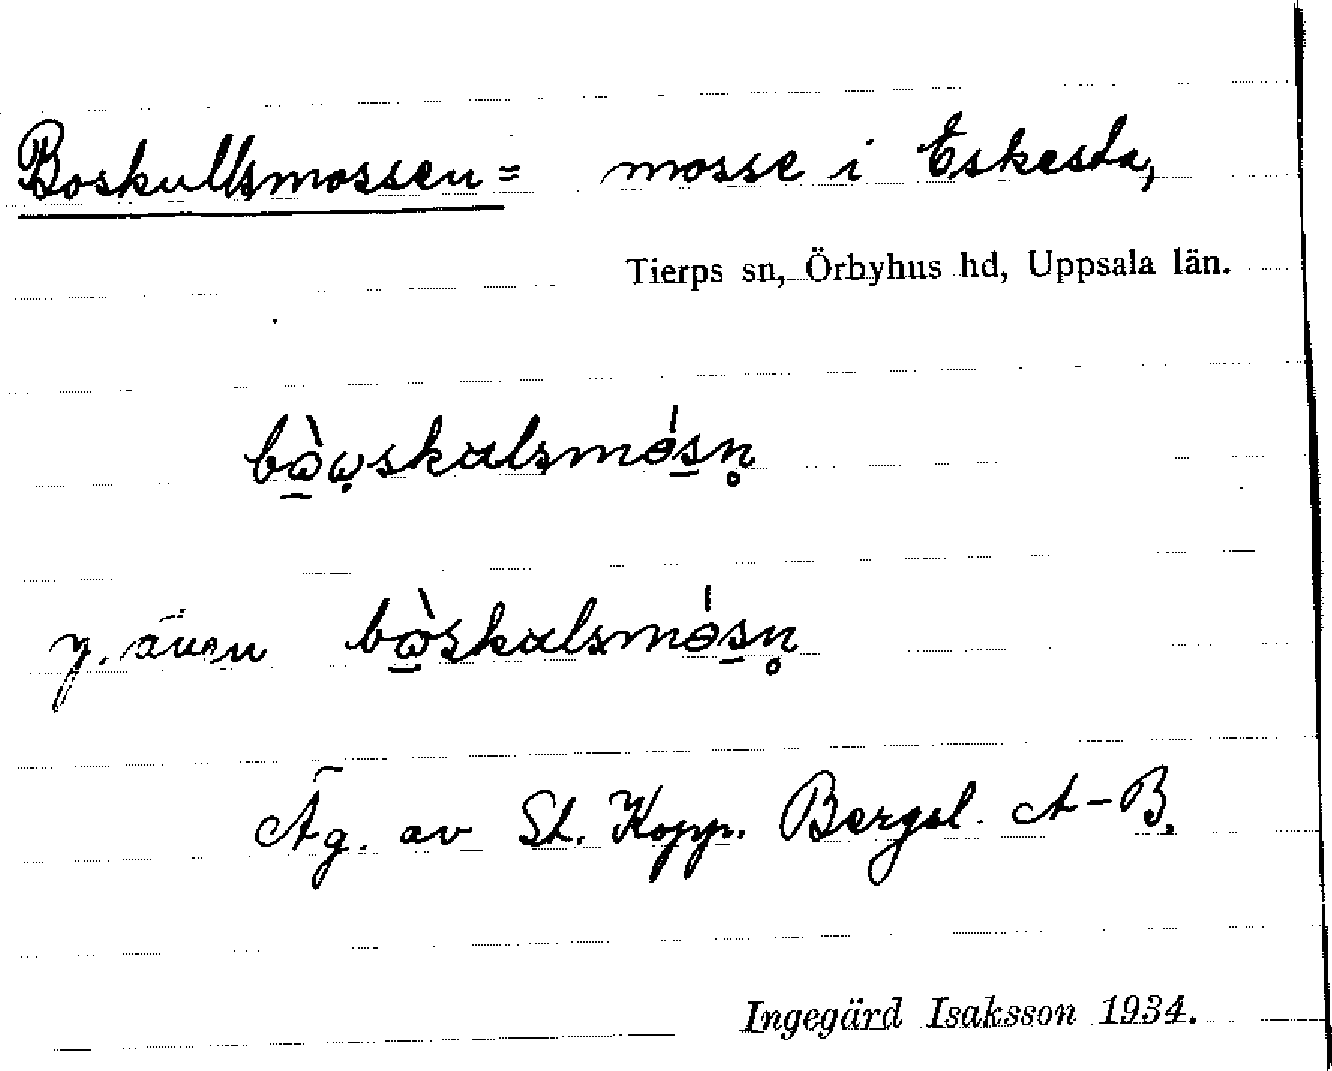 Boskullsmossen = mosse i Eskesta,
Tierps sn, Örbyhus hd, Uppsala län.
bò̠ω̣skulsmós̠n̥
y. även bὼ̠skulsmós̠n̥
Äg. av St. Kopp. Bergsl. A-B.
Ingegärd Isaksson 1934.